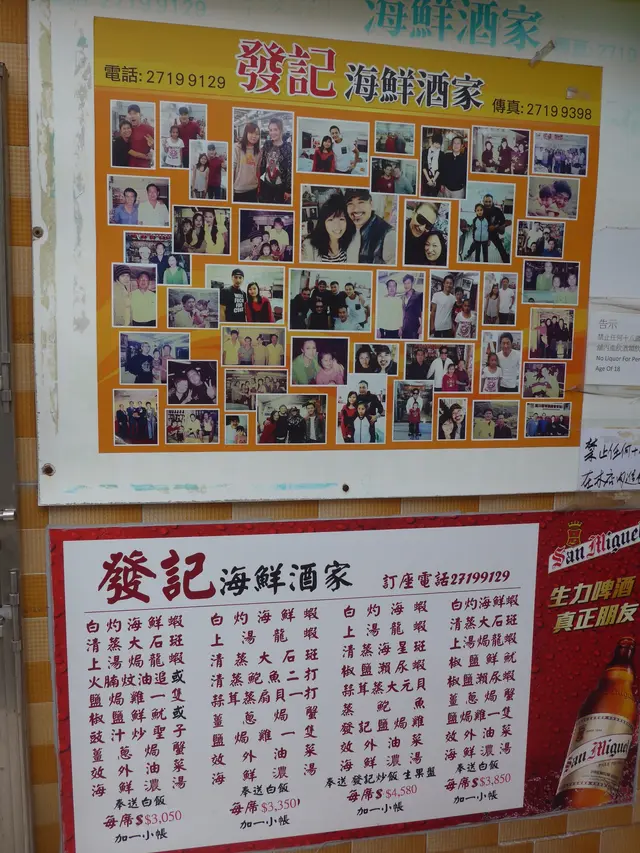 海鮮酒家
2719 9129
電話: 2719 9129
發記 海鮮酒家
傳真: 2719 9398
告示
No Liquor For
Age Of 18
發記 海鮮酒家 訂座電話27199129
白灼海鮮蝦
清蒸大石斑
上湯焗龍蝦
火腩炆油追或
鹽焗雞一隻
椒鹽鮮魷或
豉汁炒聖子
薑蔥焗蟹
效外油菜
海鮮濃湯
奉送白飯
每席$ $3,050
加一小帳
白灼海鮮蝦
上湯龍蝦
清蒸大石斑
清蒸鮑魚二打
蒜茸蒸扇貝一打
薑蔥焗蟹
鹽焗雞一隻
效外油菜
海鮮濃湯
奉送白飯
每席$ $3,350
加一小帳
白灼海蝦
上湯龍蝦
清蒸海星斑
椒鹽瀨尿蝦
蒜茸蒸大元貝
蒸鮑魚
發記鹽焗雞
效外油菜
海鮮濃湯
奉送 發記炒飯 生果盤
每席$ $4,580
加一小帳
白灼海鮮蝦
清蒸大石斑
上湯焗龍蝦
椒鹽鮮魷
椒鹽瀨尿蝦
薑蔥焗蟹
鹽焗雞一隻
效外油菜
海鮮濃湯
奉送白飯
每席$ $3,850
加一小帳
San Miguel
生力啤酒
真正朋友
San Miguel